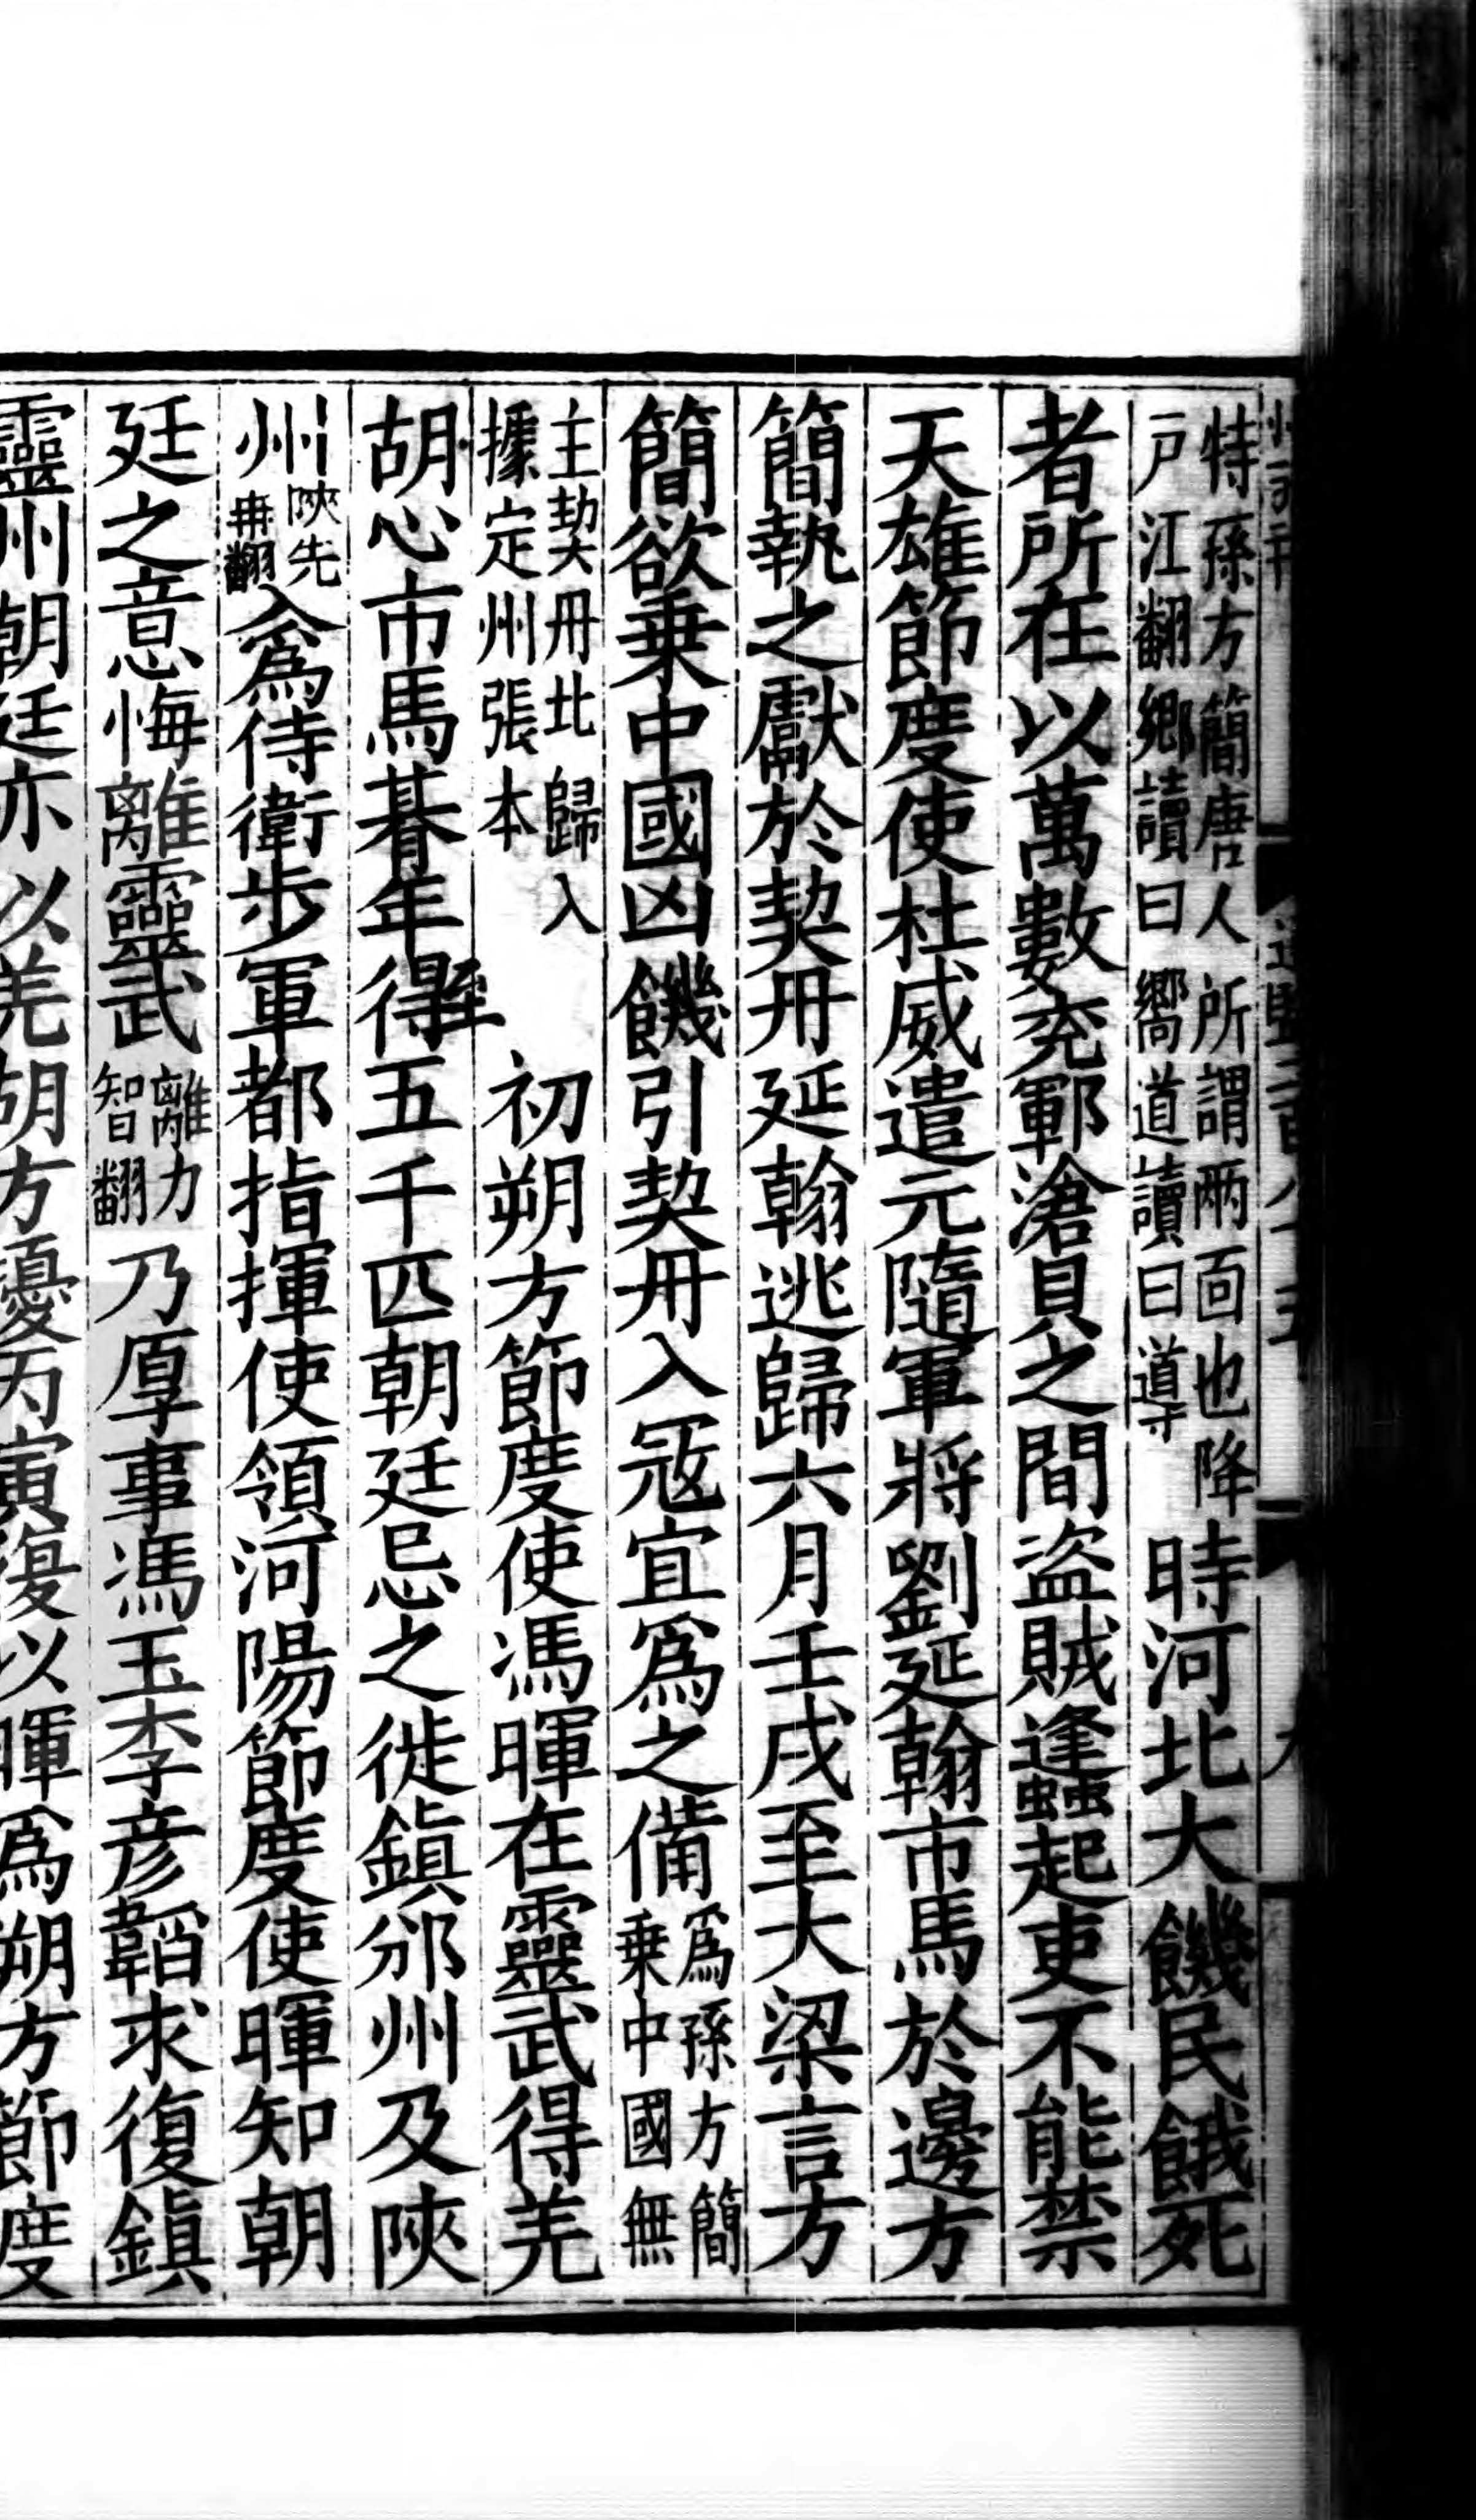 特孫方簡唐人所謂兩面也降
戶江翻鄉讀曰嚮道讀曰導
時河北大饑民餓死
者所在以萬數兗鄆滄貝之間盜賊蠭起吏不能禁
天雄節度使杜威遣元隨軍將劉延翰市馬於邊方
簡執之獻於契丹延翰逃歸六月壬戌至大梁言方
簡欲乗中國凶饑引契丹入寇宜爲之備
爲孫方簡
乗中國無
主契丹北歸入
據定州張本
初朔方節度使馮暉在靈武得羌
胡心市馬朞年得五千匹朝廷忌之徙鎭邠州及陝
州
陝先
冉翻
入爲侍衛步軍都指揮使領河陽節度使暉知朝
廷之意悔離靈武
離力
智翻
乃厚事馮玉李彦韜求復鎭
靈州朝廷亦以羌胡方擾丙寅復以暉爲朔方節度